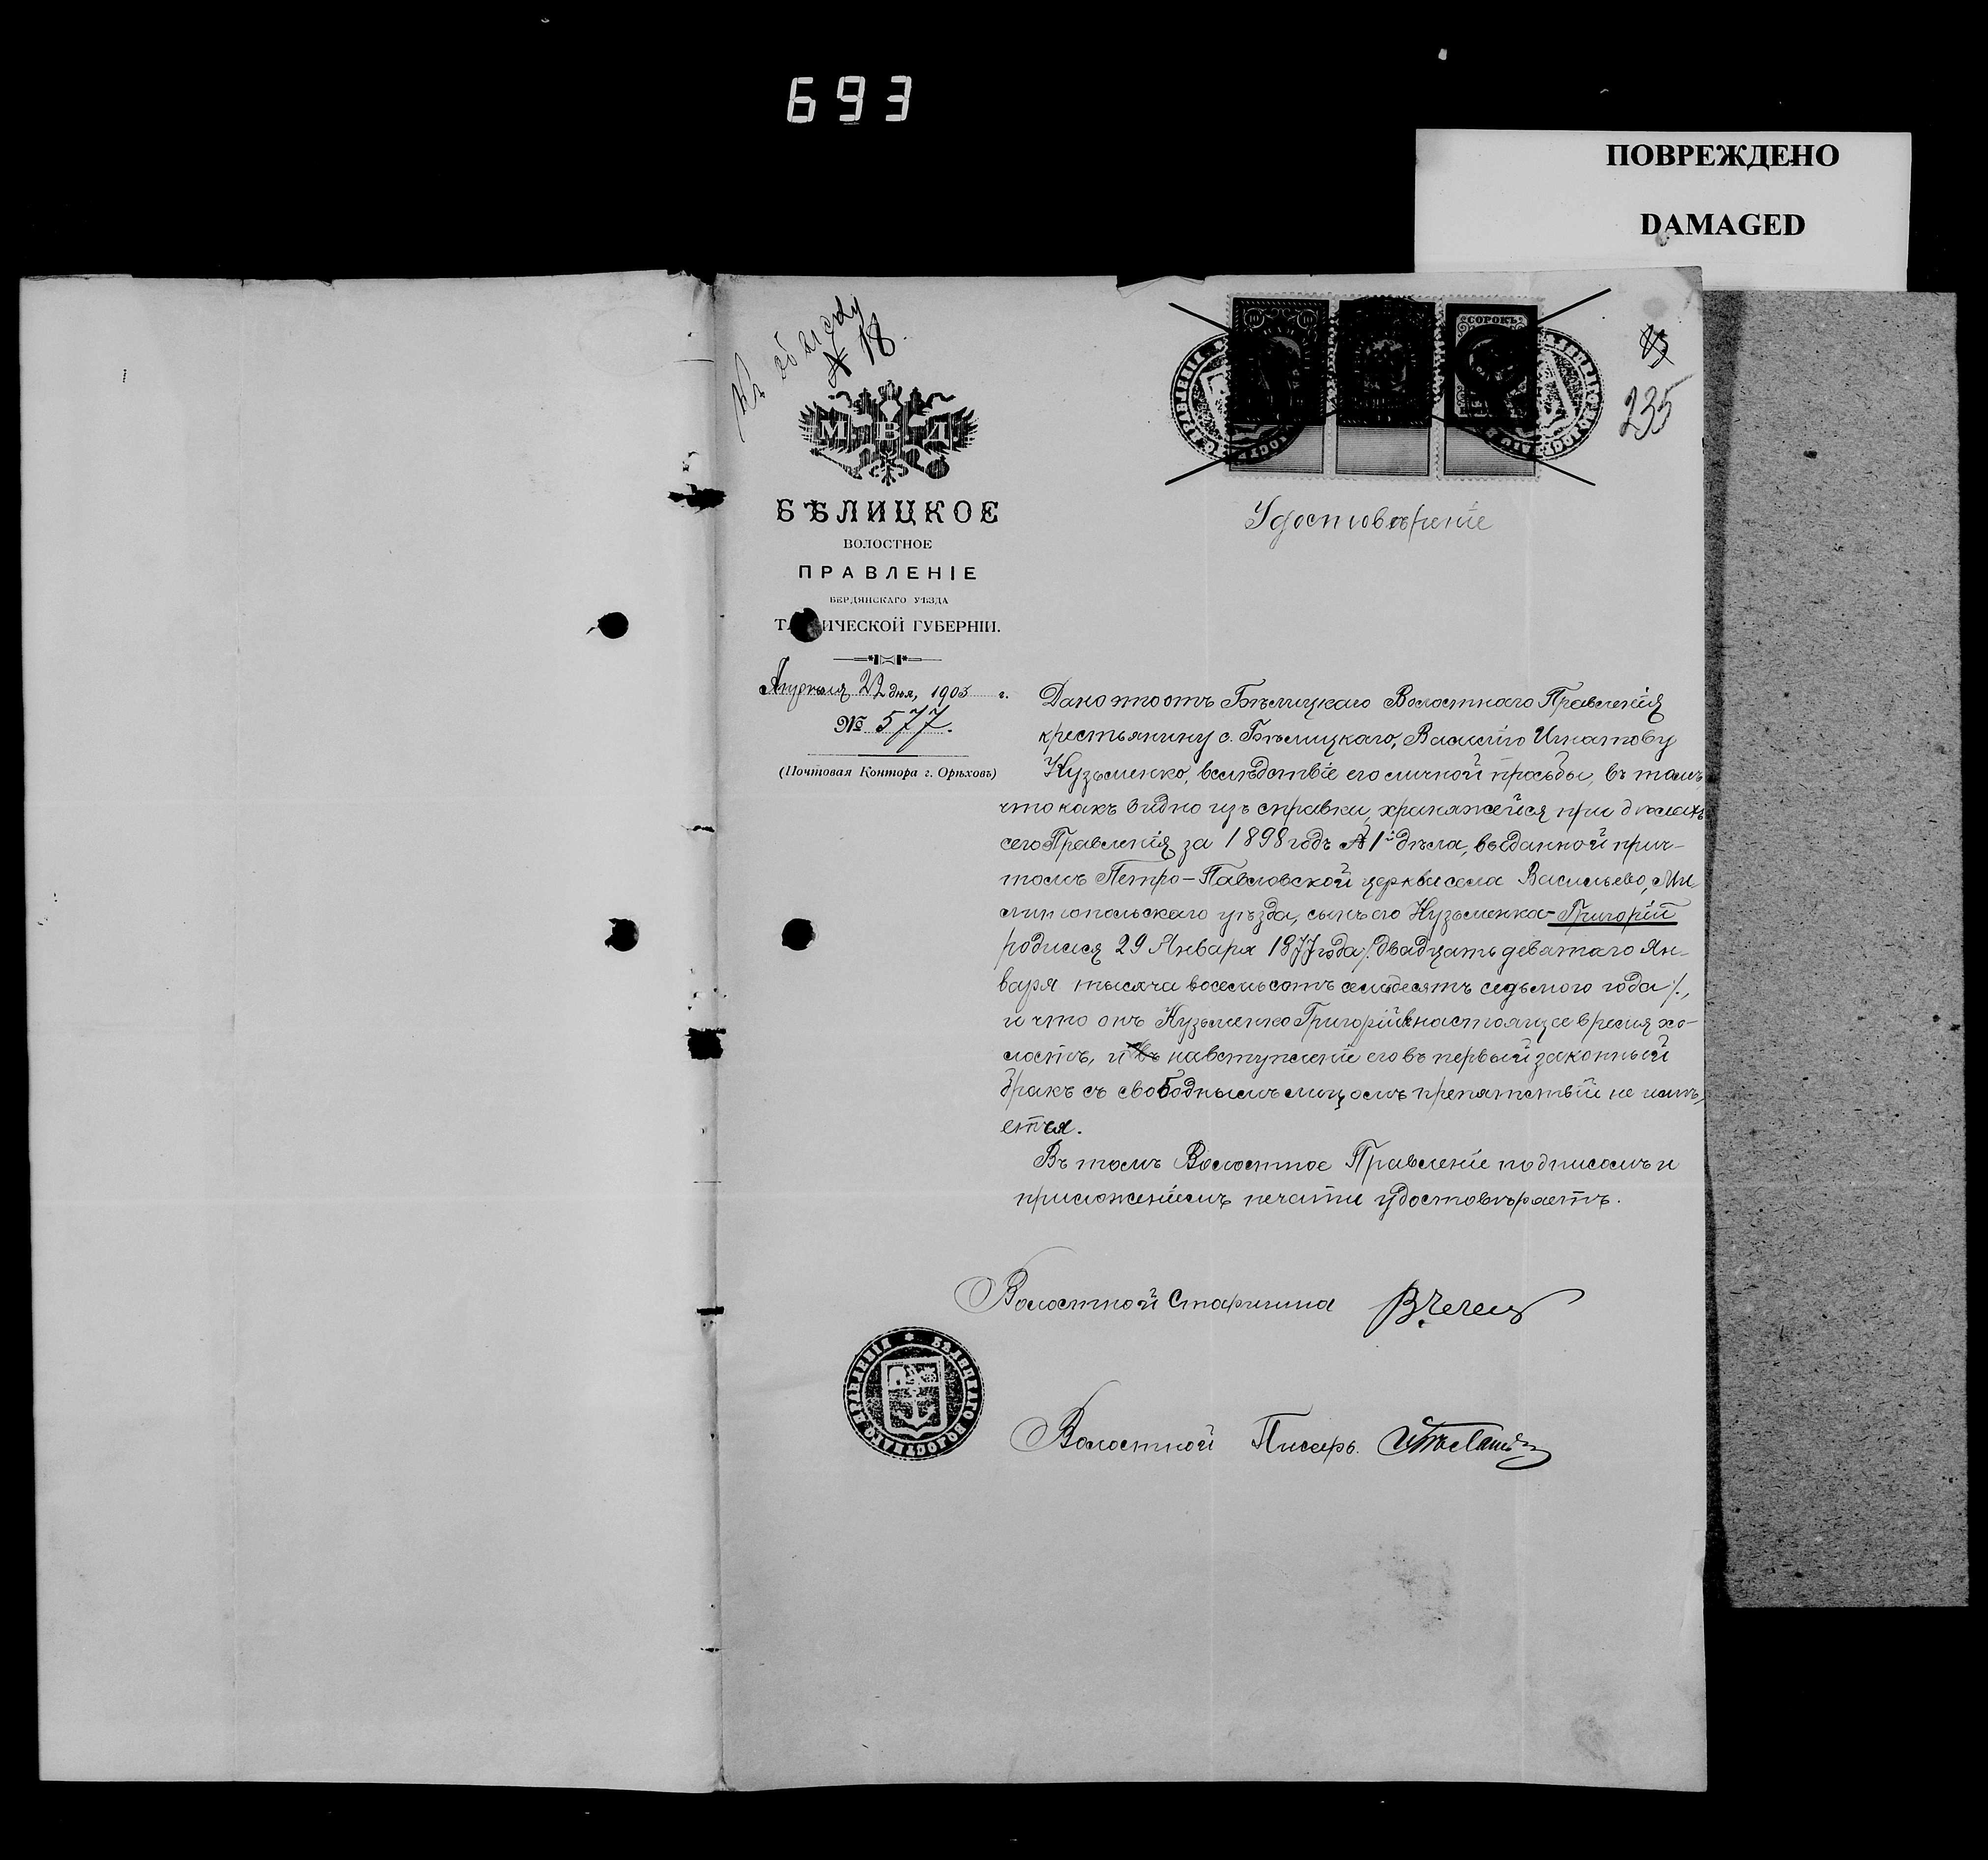 693
ПОВРЕЖДЕНО
DAMAGED
Къ обыску
№ 18.
235
10 10
СОРОКЪ
М В Д
БѢЛИЦКОЕ
ВОЛОСТНОЕ
ПРАВЛЕНІЕ
БЕРДЯНСКАГО УѢЗДА
ТА ИЧЕСКОЙ ГУБЕРНІИ.
Апрѣля 22 дня, 1903 г.
№ 577.
(Почтовая Контора г. Орѣховъ)
Удостовѣреніе
Дано это отъ Бѣлицкаго Волостного Правленія
крестьянину с. Бѣлицкаго, Василію Игнатову
Кузьменко, вслѣдствіе его личной просьбы, въ томъ,
что какъ видно изъ справки, хранящейся при дѣлахъ
сего Правленія за 1898 годъ № 1й дѣла, выданной прич-
томъ Петро-Павловской церкви села Васильево, Ме
литопольскаго уѣзда, сынъ его Кузьменка - Григорій
родился 29 Января 1877 года /. двадцать девятаго Ян-
варя тысяча восемьсотъ семьдесятъ седьмого года /.,
и что онъ Кузьменко Григорій въ настоящее время хо-
лостъ, и на вступленіе его въ первый законный
бракъ съ свободнымъ лицомъ препятствій не имѣ-
ется.
Въ томъ Волостное Правленіе подписомъ и
приложеніемъ печати удостовѣряетъ.
Волостной Старшина
БѢЛИЦКАГО ВОЛОСТНАГО ПРАВЛЕНІЯ
Волостной Писарь.